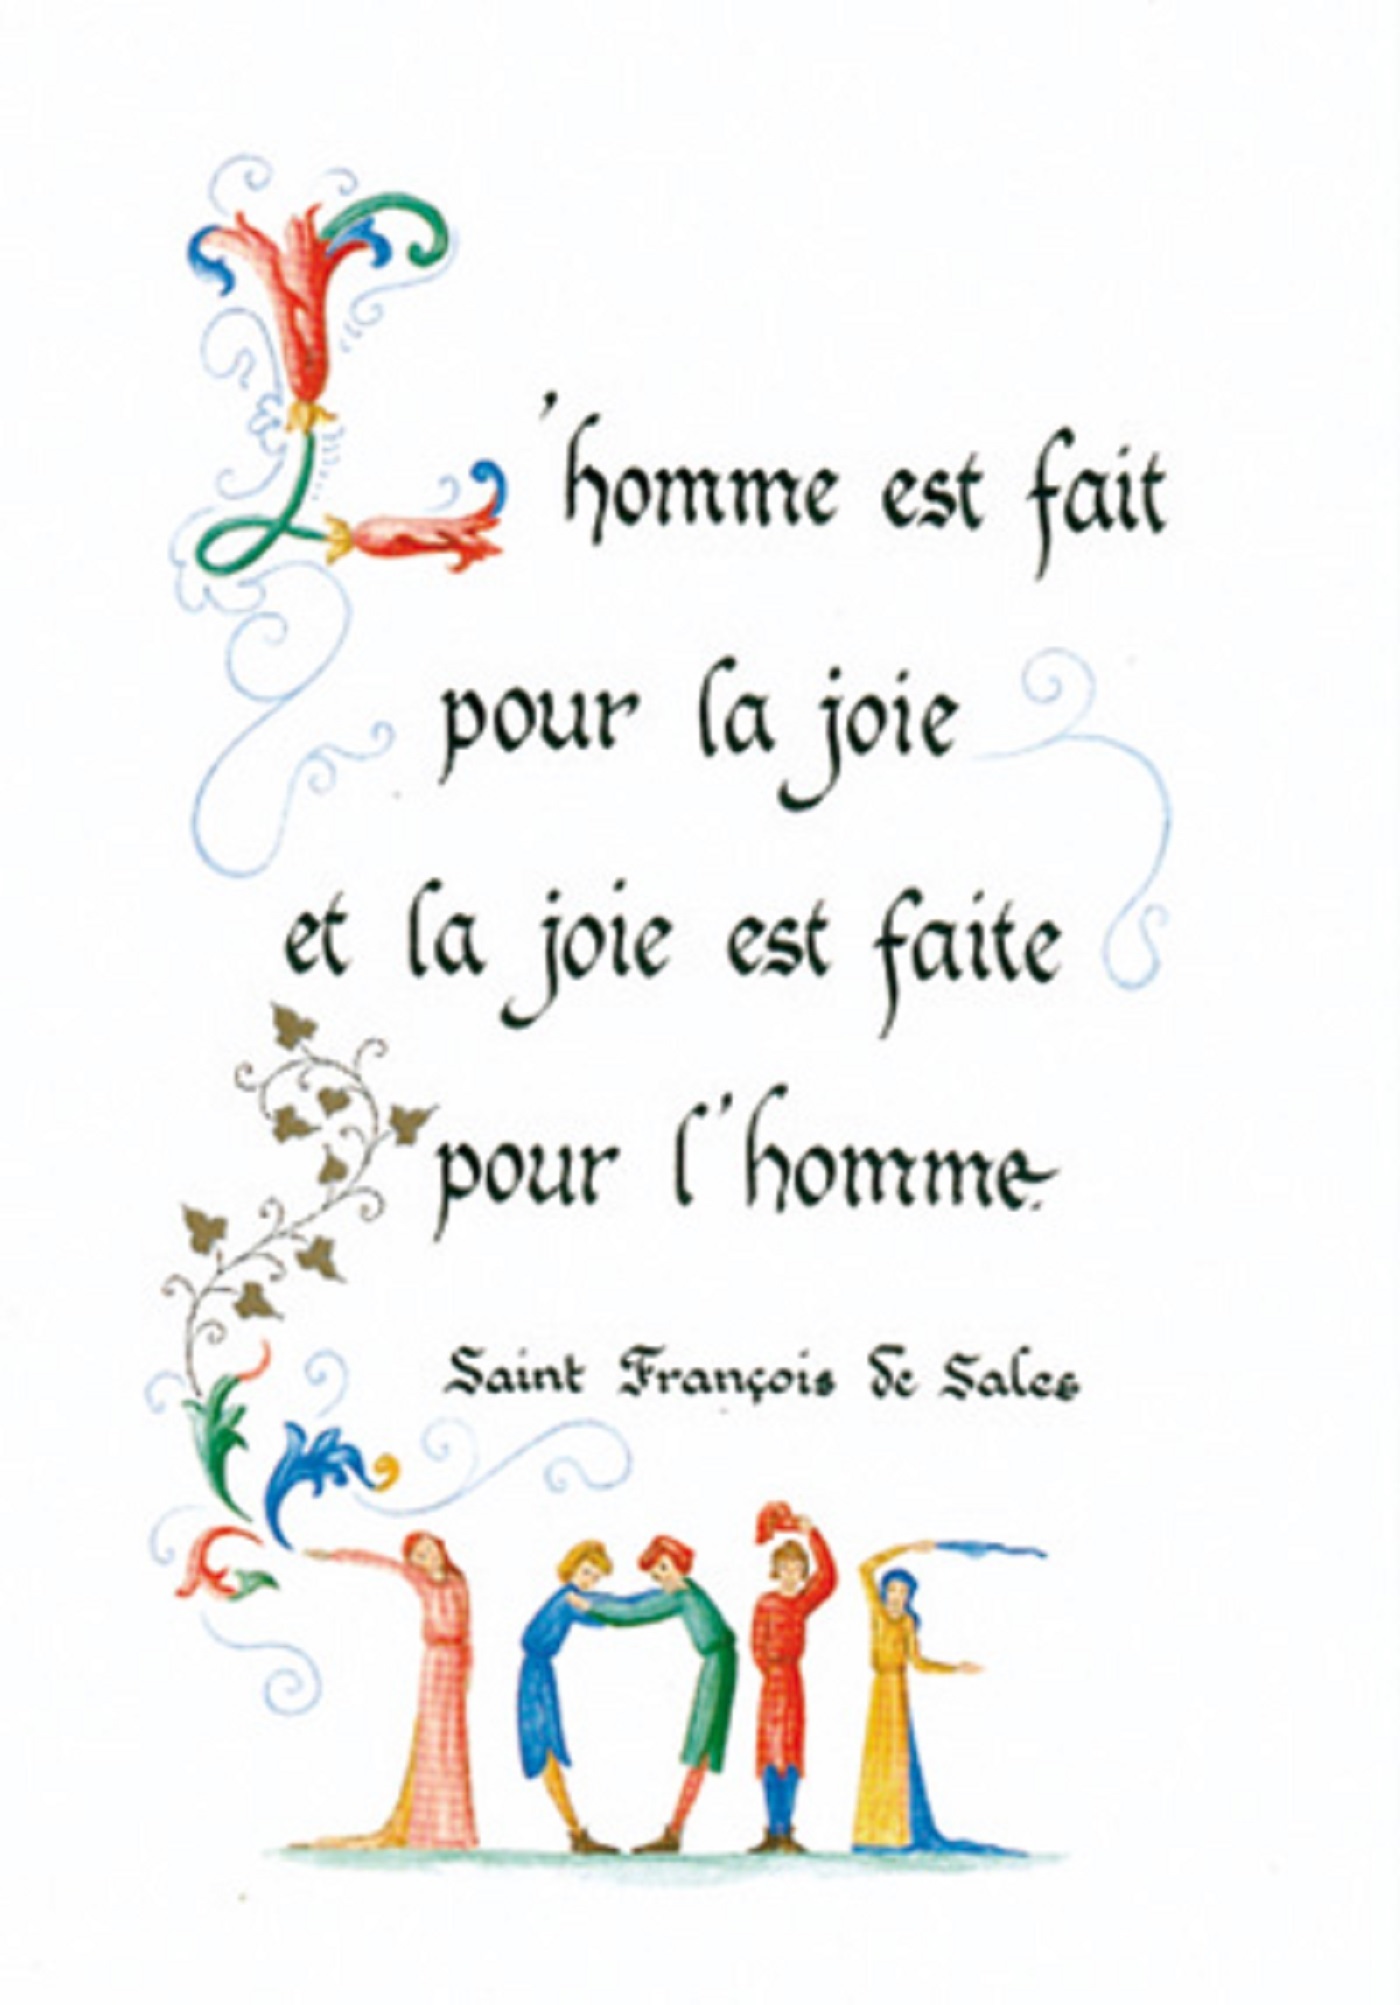 L'homme est fait
pour la joie
et la joie est faite
pour l'homme.
Saint François de Sales
JOIE